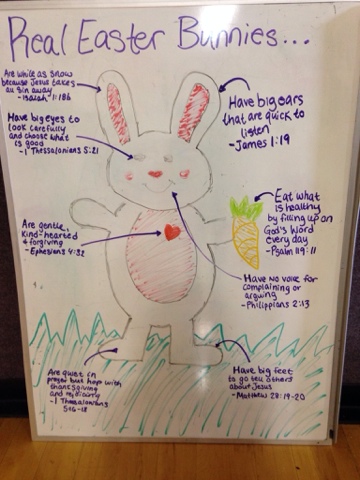 Real Easter Bunnies...
Are white as snow
because Jesus takes
our sin away
-Isaiah 1:18b
Have big ears
that are quick to
listen
-James 1:19
Have big eyes to
look carefully
and choose what
is good
-1 Thessalonians 5:21
Eat what
is healthy
by filling up on
God's Word
every day
-Psalm 119:11
Are gentle,
kind-hearted
& forgiving
-Ephesians 4:32
Have no voice for
complaining or
arguing
-Philippians 2:13
Are quiet in
prayer but hops with
thanksgiving
and rejoicing
-1 Thessalonians
5:16-18
Have big feet
to go tell others
about Jesus
-Matthew 28:19-20